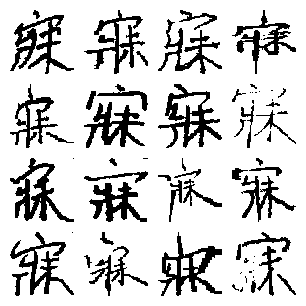 寐寐寐寐
寐寐寐寐
寐寐寐寐
寐寐寐寐